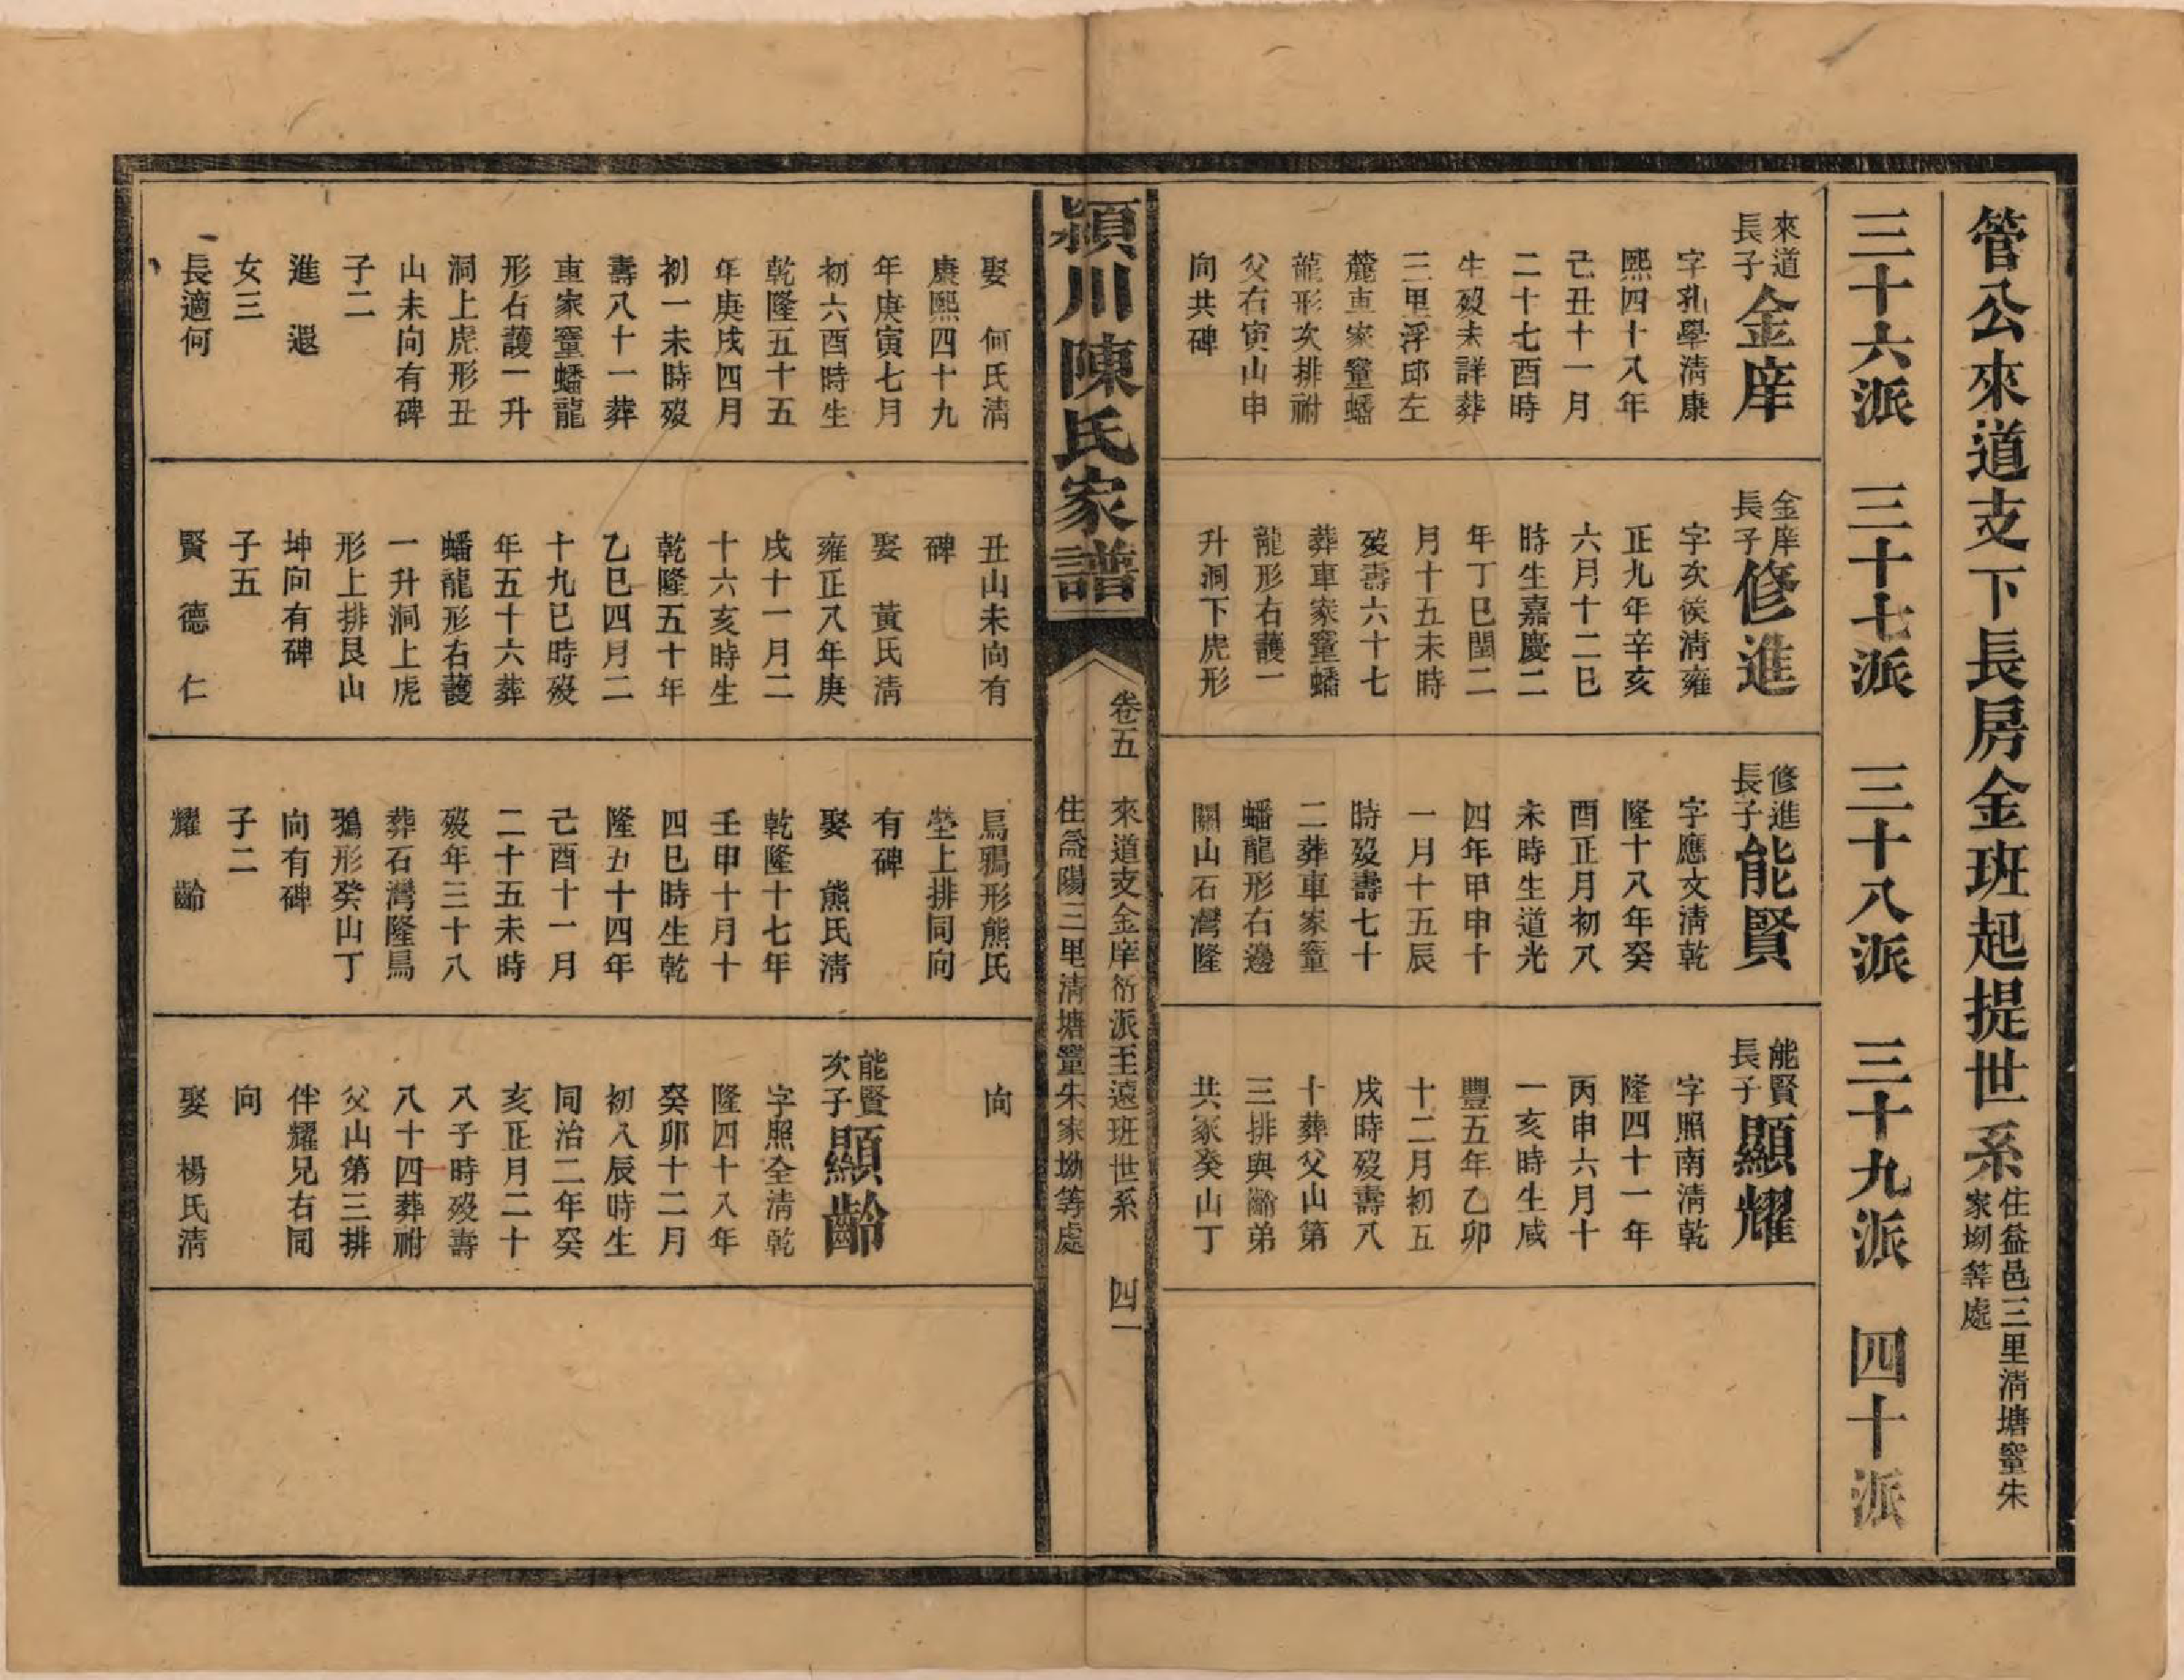 管公來道支下長房金班起提世系
住益邑三里清塘窰朱
家坳等處
三十六派 三十七派 三十八派 三十九派 四十派
來道
長子
金庠
字孔學清康
熙四十八年
己丑十一月
二十七酉時
生歿未詳葬
三里浮邱左
麓車家窰蟠
龍形次排祔
父右寅山申
向共碑
金庠
長子
修進
字次侯清雍
正九年辛亥
六月十二巳
時生嘉慶二
年丁巳閏二
月十五未時
歿壽六十七
葬車家窰蟠
龍形右護一
升洞下虎形
修進
長子
能賢
字應文清乾
隆十八年癸
酉正月初八
未時生道光
四年甲申十
一月十五辰
時歿壽七十
二葬車家窰
蟠龍形右邊
關山石灣隆
能賢
長子
顯耀
字照南清乾
隆四十一年
丙申六月十
一亥時生咸
豐五年乙卯
十二月初五
戌時歿壽八
十葬父山第
三排與齡弟
共冢癸山丁
潁川陳氏家譜
卷五 來道支金庠衍派至遠班世系 四一
住益陽三里清塘窰朱家坳等處
娶 何氏清
康熙四十九
年庚寅七月
初六酉時生
乾隆五十五
年庚戌四月
初一未時歿
壽八十一葬
車家窰蟠龍
形右護一升
洞上虎形丑
山未向有碑
子二
進 選
女三
長適何
丑山未向有
碑
娶 黃氏清
雍正八年庚
戌十一月二
十六亥時生
乾隆五十年
乙巳四月二
十九巳時歿
年五十六葬
蟠龍形右護
一升洞上虎
形上排艮山
坤向有碑
子五
賢 德 仁
馬鴉形熊氏
塋上排同向
有碑
娶 熊氏清
乾隆十七年
壬申十月十
四巳時生乾
隆五十四年
己酉十一月
二十五未時
歿年三十八
葬石灣隆馬
鴉形癸山丁
向有碑
子二
耀 齡
向
能賢
次子
顯齡
字照全清乾
隆四十八年
癸卯十二月
初八辰時生
同治二年癸
亥正月二十
八子時歿壽
八十四葬祔
父山第三排
伴耀兄右同
向
娶 楊氏清